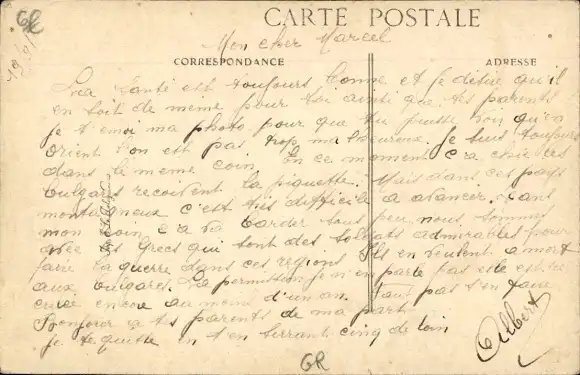 GR
CARTE POSTALE
Mon cher Marcel
CORRESPONDANCE
ADRESSE
La santé est toujours bonne et je désire qu'il
en soit de meme pour toi ainsi que tes parents
je t'envoi ma photo pour que tu puisse voir qu'en
orient l'on est pas trop malheureux. Je suis toujours
dans le meme coin En ce moment ca les
bulgars recoivent la piquette. Mais dans ces pays
montagneux c'est très difficile a avancer. Dans
mon coin ca va barder sous peu, nous sommes
avec les Grecs qui sont des soldats admirables pour
faire la guerre dans ces regions Ils en veulent a mort
aux bulgares. La permission je n'en parle pas elle est
encore au moins d'un an. Faut pas s'en faire
Bonjour a tes parents de ma part
je te quitte en t'en serrant cinq de loin
Albert
GR